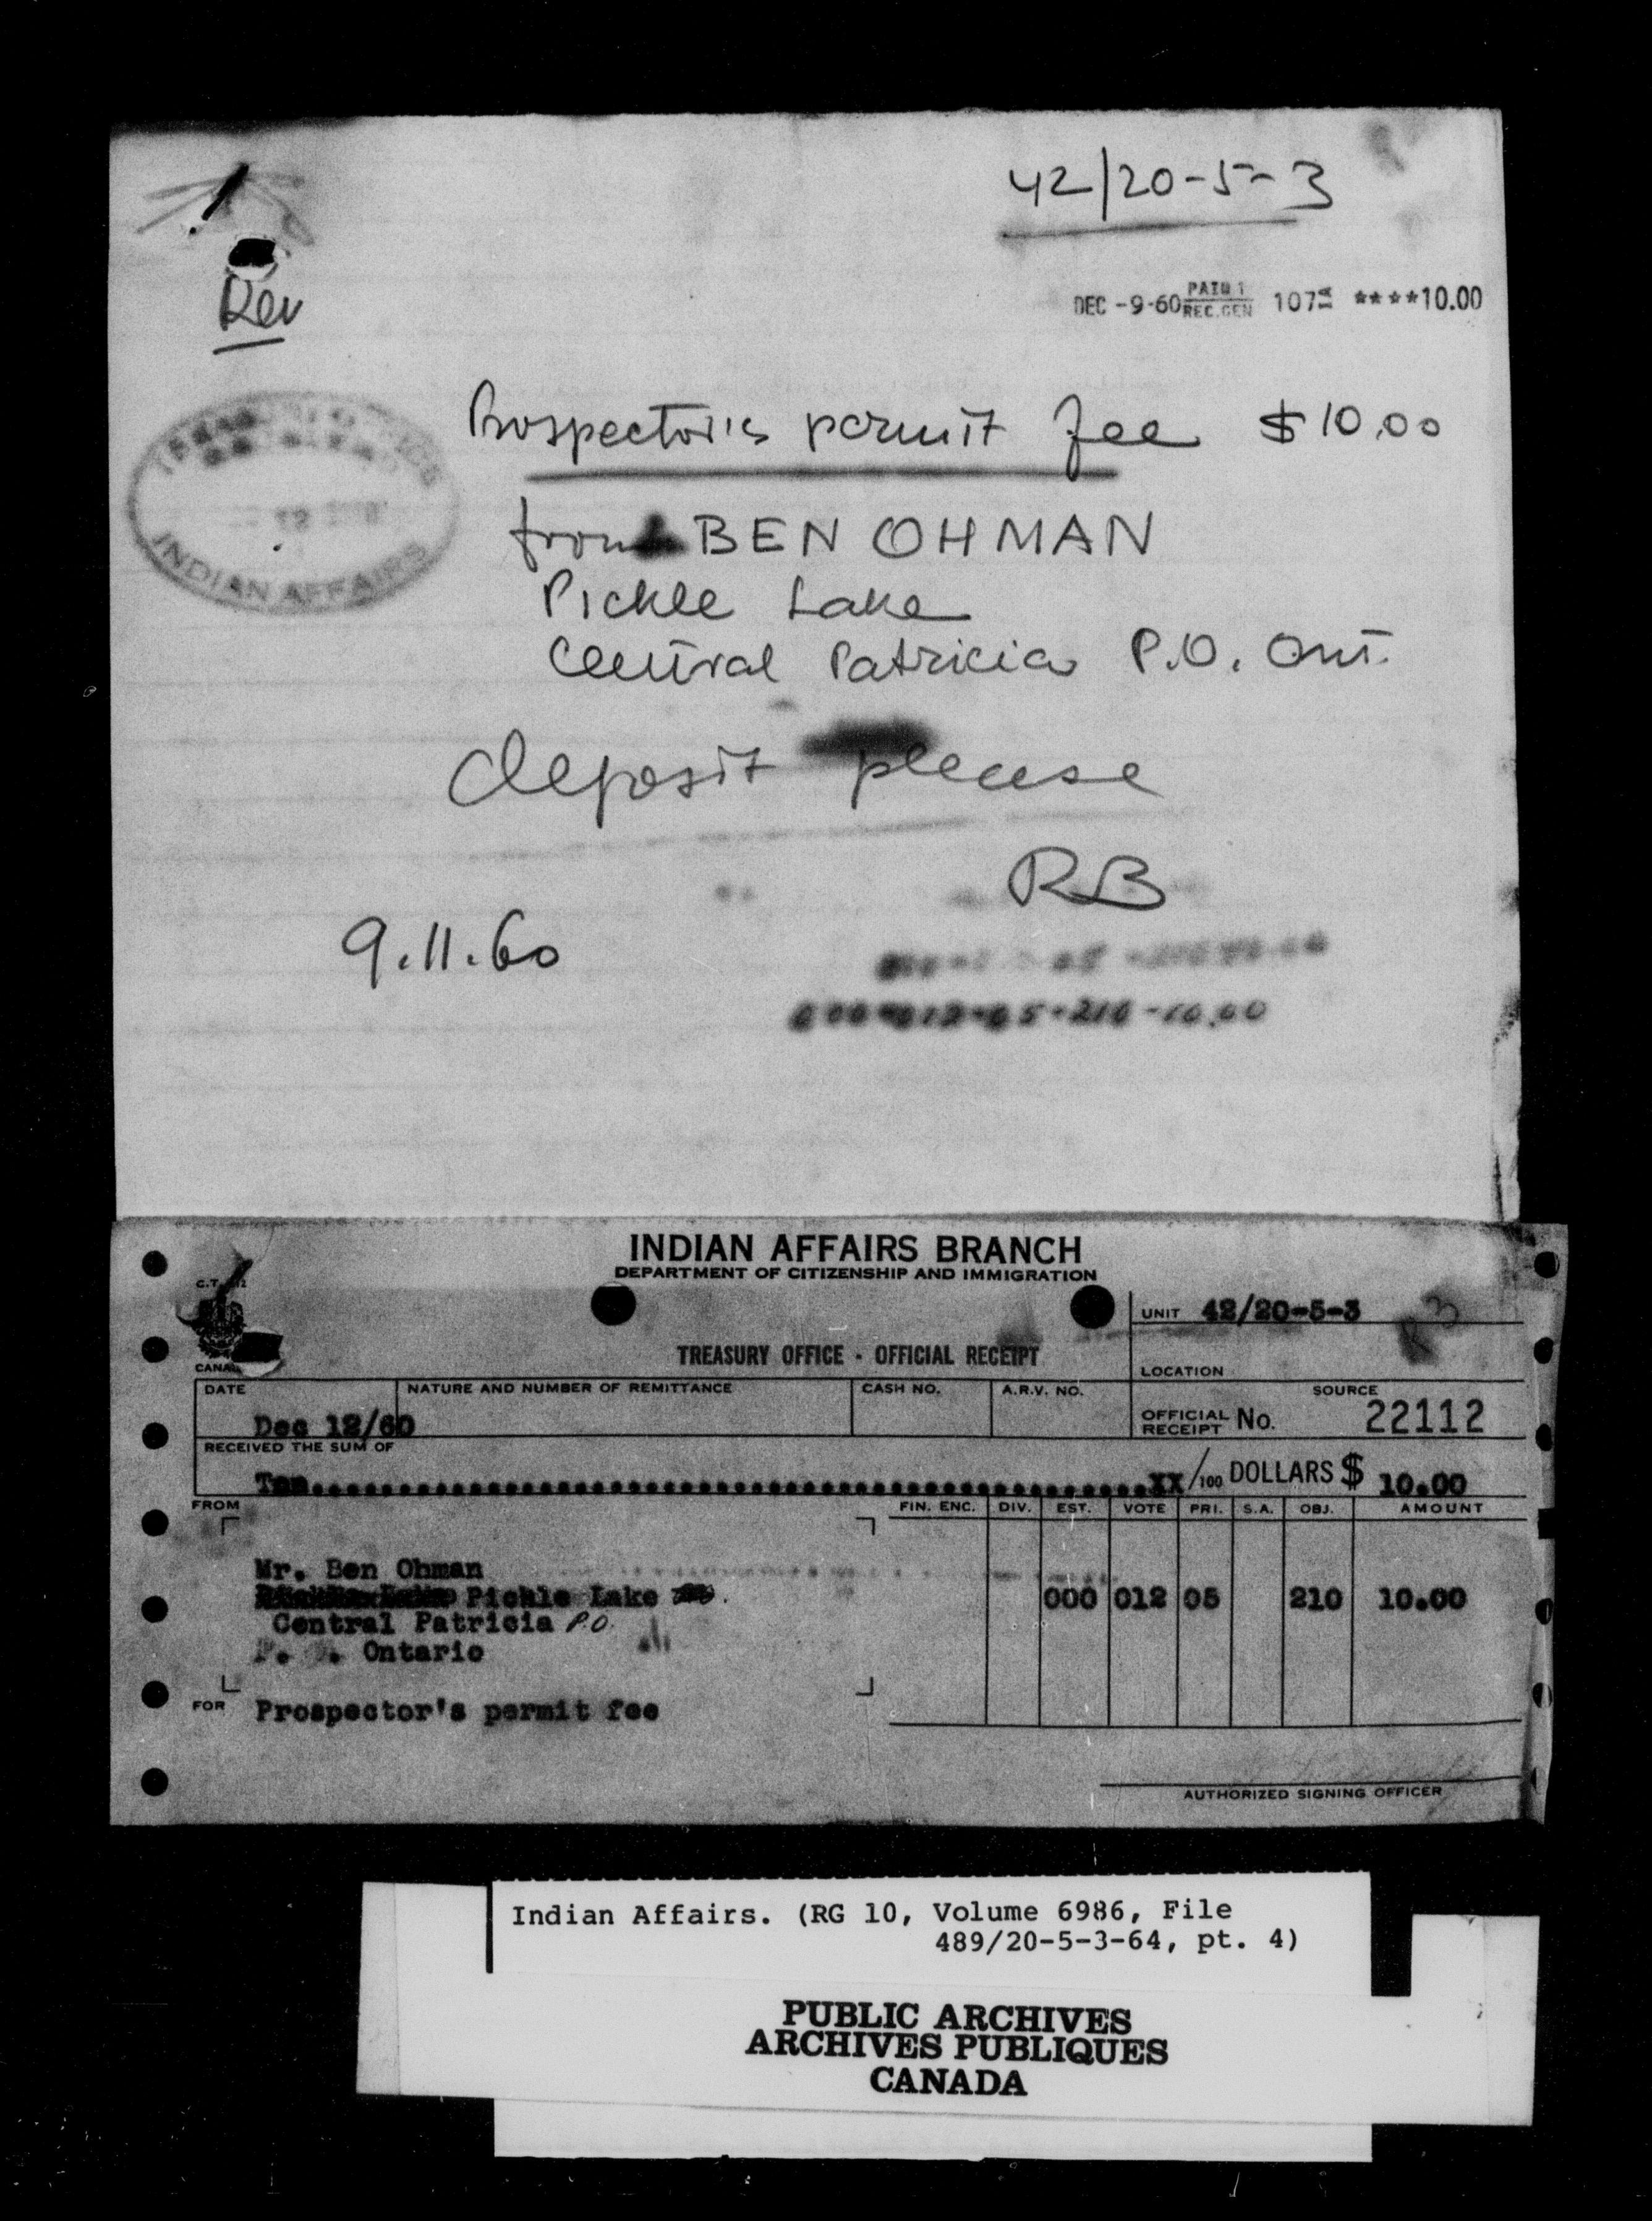 42/20-5-3
Rev
DEC -9-60 PAID 1 REC.GEN 107 ****10.00
Prospector's permit fee $10.00
INDIAN AFFAIRS
from BEN OHMAN
Pickle Lake
Central Patricia P.O. Ont.
deposit please
RB
9.11.60
000-012-05-210-10.00
INDIAN AFFAIRS BRANCH
DEPARTMENT OF CITIZENSHIP AND IMMIGRATION
C.T.
CANADA
UNIT 42/20-5-3
TREASURY OFFICE - OFFICIAL RECEIPT
LOCATION
DATE NATURE AND NUMBER OF REMITTANCE CASH NO. A.R.V. NO. SOURCE
Dec 12/60 OFFICIAL RECEIPT No. 22112
RECEIVED THE SUM OF
Ten..........................................................XX/100 DOLLARS $ 10.00
FROM FIN. ENC. DIV. EST. VOTE PRI. S.A. OBJ. AMOUNT
Mr. Ben Ohman
Pickle Lake 000 012 05 210 10.00
Central Patricia P.O.
Ontario
FOR Prospector's permit fee
AUTHORIZED SIGNING OFFICER
Indian Affairs. (RG 10, Volume 6986, File
489/20-5-3-64, pt. 4)
PUBLIC ARCHIVES
ARCHIVES PUBLIQUES
CANADA